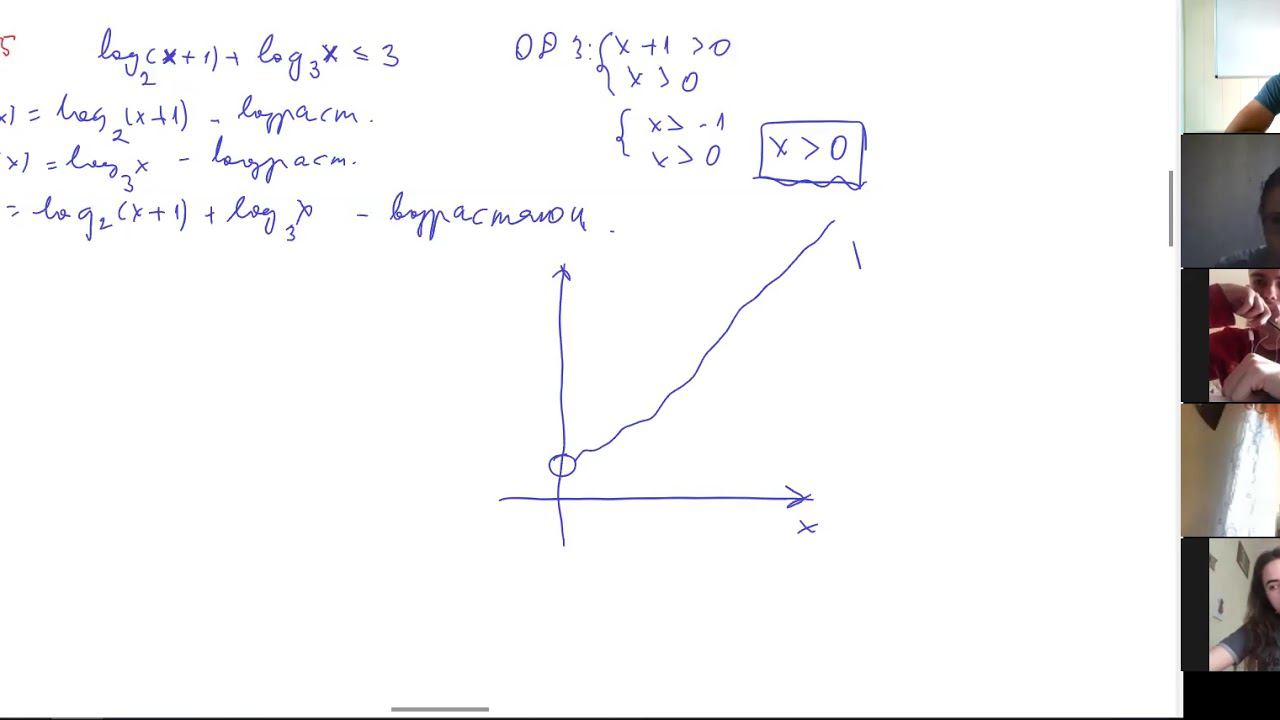 5 log₂(x+1) + log₃x ≤ 3
ОДЗ: { x + 1 > 0
x > 0
{ x > -1
x > 0
x > 0
x) = log₂(x+1) - возраст.
(x) = log₃x - возраст.
= log₂(x+1) + log₃x - возрастающ.
x